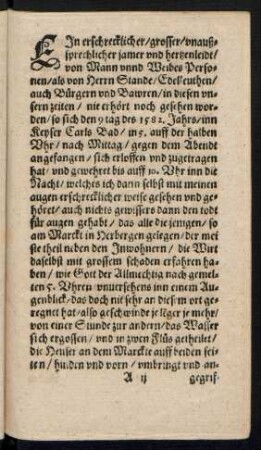 EIn erschrecklicher/grosser/vnauß-
sprechlicher jamer vnd hertzenleidt/
von Mann vnnd Weibes Perso-
nen/als von Herrn Stande/Edelleuthen/
auch Bürgern vnd Bawren/in diesen vn-
sern zeiten/ nie erhört noch gesehen wor-
den/so sich den 9 tag des 1582. Jahrs/inn
Keyser Carls Bad/in 5. auff der halben
Vhr/nach Mittag/gegen dem Abendt
angefangen/sich erloffen vnd zugetragen
hat/vnd gewehret bis auff 10. Vhr inn die
Nacht/welches ich dann selbst mit meinen
augen erschrecklicher weise gesehen vnd ge-
höret/auch nichts gewissers dann den todt
für augen gehabt/ das alle die jenigen/so
am Marckt in Herbergen gelegen/der mei-
ste theil neben den Inwohnern/ die Wirt
daselbst mit grossem schaden erfahren ha-
ben/wie Gott der Allmechtig nach gemel-
ten 5. Vhren/vnuersehens inn einem Au-
genblick/das doch nit sehr an diesem ort ge-
regnet hat/also geschwinde je lenger je mehr/
von einer Stunde zur andern/das Wasser
sich ergossen/vnd in zwen Flüs getheilet/
die Heuser an dem Marckte auff beiden sei-
ten/hinden vnd vorn/vmbringt vnd an-
A ij gegrif-